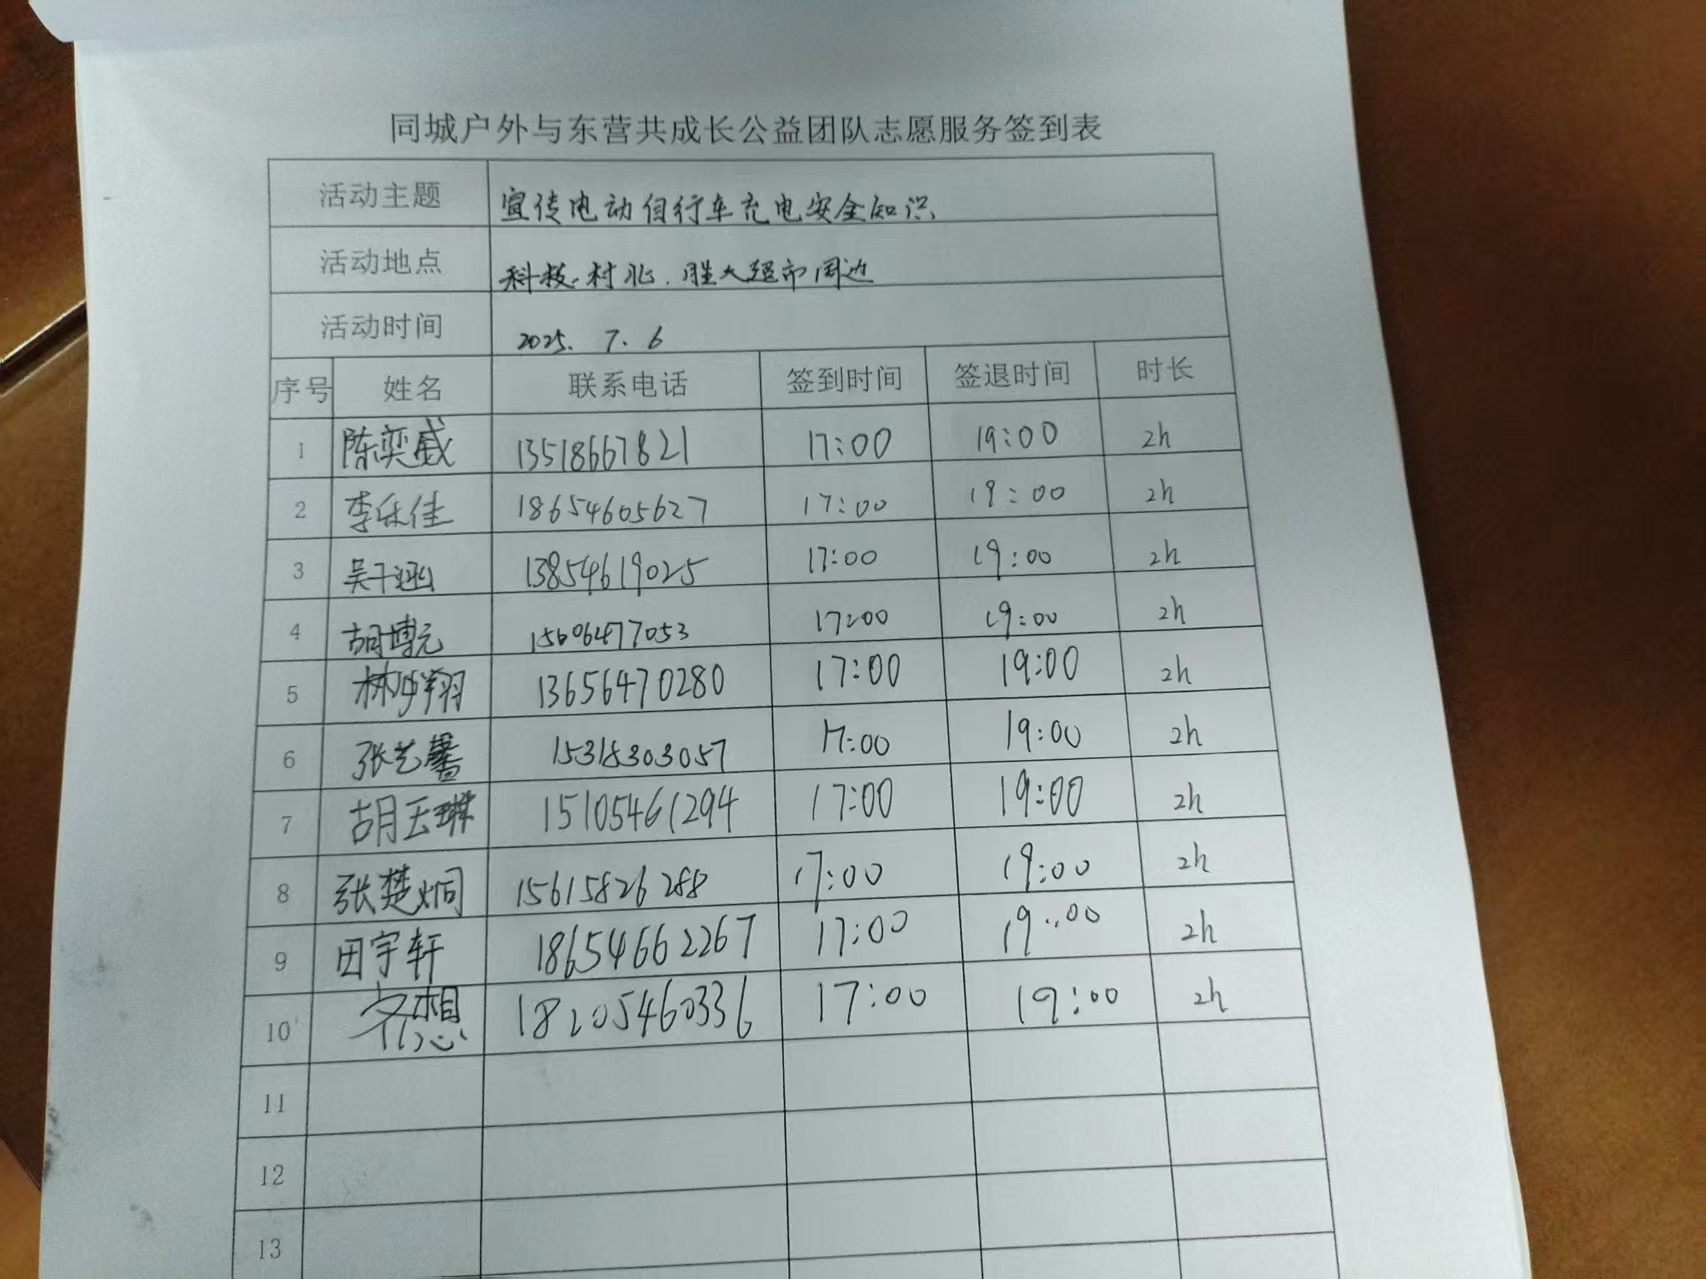 同城户外与东营共成长公益团队志愿服务签到表
活动主题 宣传电动自行车充电安全知识
活动地点 科技村北.胜大超市周边
活动时间 2025.7.6
序号 姓名 联系电话 签到时间 签退时间 时长
1 陈奕威 13518667821 17:00 19:00 2h
2 李乐佳 18654605627 17:00 19:00 2h
3 吴千涵 13854619025 17:00 19:00 2h
4 胡博元 15606477053 17:00 19:00 2h
5 13656470280 17:00 19:00 2h
6 张艺馨 15318303057 17:00 19:00 2h
7 胡玉琳 15105461294 17:00 19:00 2h
8 张楚炯 15615826288 17:00 19:00 2h
9 田宇轩 18654662267 17:00 19:00 2h
10 齐想 18205460336 17:00 19:00 2h
11
12
13